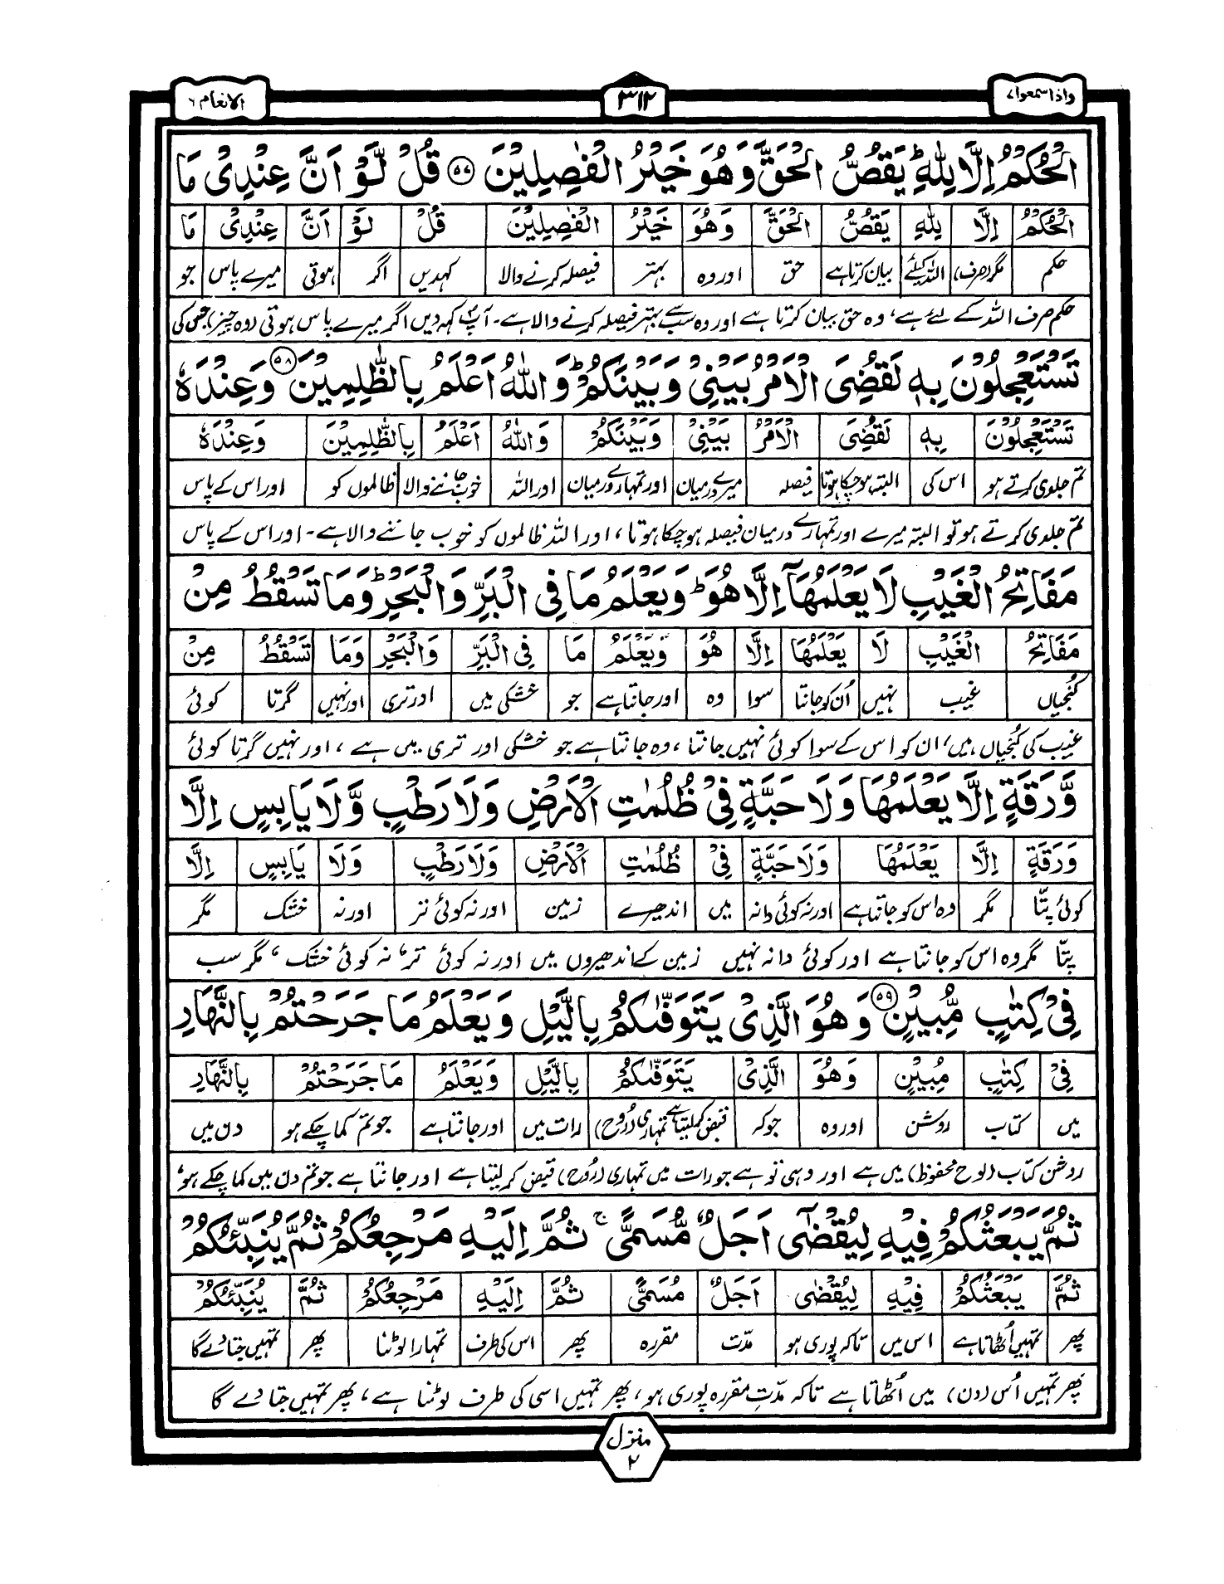 واذا سمعوا ۷ ۳۱۲ الانعام ۶
الْحُكْمُ اِلَّا لِلّٰهِ ؕ یَقُصُّ الْحَقَّ وَهُوَ خَیْرُ الْفٰصِلِیْنَ ۝۵۷ قُلْ لَّوْ اَنَّ عِنْدِیْ مَا
الْحُكْمُ اِلَّا لِلّٰهِ یَقُصُّ الْحَقَّ وَهُوَ خَیْرُ الْفٰصِلِیْنَ قُلْ لَّوْ اَنَّ عِنْدِیْ مَا
حکم مگر (صرف) اللہ کیلئے بیان کرتا ہے حق اور وہ بہتر فیصلہ کرنے والا کہدیں اگر ہوتی میرے پاس جو
حکم صرف اللہ کے لئے ہے، وہ حق بیان کرتا ہے اور وہ سب سے بہتر فیصلہ کرنے والا ہے۔ آپؐ کہہ دیں اگر میرے پاس ہوتی (وہ چیز) جس کی
تَسْتَعْجِلُوْنَ بِهٖ لَقُضِیَ الْاَمْرُ بَیْنِیْ وَبَیْنَكُمْ ؕ وَاللّٰهُ اَعْلَمُ بِالظّٰلِمِیْنَ ۝۵۸ وَعِنْدَهٗ
تَسْتَعْجِلُوْنَ بِهٖ لَقُضِیَ الْاَمْرُ بَیْنِیْ وَبَیْنَكُمْ وَاللّٰهُ اَعْلَمُ بِالظّٰلِمِیْنَ وَعِنْدَهٗ
تم جلدی کرتے ہو اس کی البتہ ہو چکا ہوتا فیصلہ میرے درمیان اور تمہارے درمیان اور اللہ خوب جاننے والا ظالموں کو اور اس کے پاس
تم جلدی کرتے ہو تو البتہ میرے اور تمہارے درمیان فیصلہ ہو چکا ہوتا، اور اللہ ظالموں کو خوب جاننے والا ہے۔ اور اس کے پاس
مَفَاتِحُ الْغَیْبِ لَا یَعْلَمُهَاۤ اِلَّا هُوَ ؕ وَیَعْلَمُ مَا فِی الْبَرِّ وَالْبَحْرِ ؕ وَمَا تَسْقُطُ مِنْ
مَفَاتِحُ الْغَیْبِ لَا یَعْلَمُهَا اِلَّا هُوَ وَیَعْلَمُ مَا فِی الْبَرِّ وَالْبَحْرِ وَمَا تَسْقُطُ مِنْ
کنجیاں غیب نہیں اُن کو جانتا سوا وہ اور جانتا ہے جو خشکی میں اور تری اور نہیں گرتا کوئی
غیب کی کنجیاں ہیں، ان کو اس کے سوا کوئی نہیں جانتا، وہ جانتا ہے جو خشکی اور تری میں ہے، اور نہیں گرتا کوئی
وَّرَقَةٍ اِلَّا یَعْلَمُهَا وَلَا حَبَّةٍ فِیْ ظُلُمٰتِ الْاَرْضِ وَلَا رَطْبٍ وَّلَا یَابِسٍ اِلَّا
وَرَقَةٍ اِلَّا یَعْلَمُهَا وَلَا حَبَّةٍ فِیْ ظُلُمٰتِ الْاَرْضِ وَلَا رَطْبٍ وَلَا یَابِسٍ اِلَّا
کوئی پتّا مگر وہ اس کو جانتا ہے اور نہ کوئی دانہ میں اندھیرے زمین اور نہ کوئی تر اور نہ خشک مگر
پتّا مگر وہ اس کو جانتا ہے اور کوئی دانہ نہیں زمین کے اندھیروں میں اور نہ کوئی تر، نہ کوئی خشک، مگر سب
فِیْ كِتٰبٍ مُّبِیْنٍ ۝۵۹ وَهُوَ الَّذِیْ یَتَوَفّٰىكُمْ بِالَّیْلِ وَیَعْلَمُ مَا جَرَحْتُمْ بِالنَّهَارِ
فِیْ كِتٰبٍ مُبِیْنٍ وَهُوَ الَّذِیْ یَتَوَفّٰىكُمْ بِالَّیْلِ وَیَعْلَمُ مَا جَرَحْتُمْ بِالنَّهَارِ
میں کتاب روشن اور وہ جو کہ قبض کر لیتا ہے تمہاری (رُوح) رات میں اور جانتا ہے جو تم کما چکے ہو دن میں
روشن کتاب (لوح محفوظ) میں ہے اور وہی تو ہے جو رات میں تمہاری (رُوح) قبض کر لیتا ہے اور جانتا ہے جو تم دن میں کما چکے ہو،
ثُمَّ یَبْعَثُكُمْ فِیْهِ لِیُقْضٰۤی اَجَلٌ مُّسَمًّی ۚ ثُمَّ اِلَیْهِ مَرْجِعُكُمْ ثُمَّ یُنَبِّئُكُمْ
ثُمَّ یَبْعَثُكُمْ فِیْهِ لِیُقْضٰی اَجَلٌ مُسَمًّی ثُمَّ اِلَیْهِ مَرْجِعُكُمْ ثُمَّ یُنَبِّئُكُمْ
پھر تمہیں اُٹھاتا ہے اس میں تاکہ پوری ہو مدّت مقررہ پھر اس کی طرف تمہارا لوٹنا پھر تمہیں جتا دے گا
پھر تمہیں اُس (دن) میں اُٹھاتا ہے تاکہ مدّت مقررہ پوری ہو، پھر تمہیں اسی کی طرف لوٹنا ہے، پھر تمہیں جتا دے گا
منزل
۲